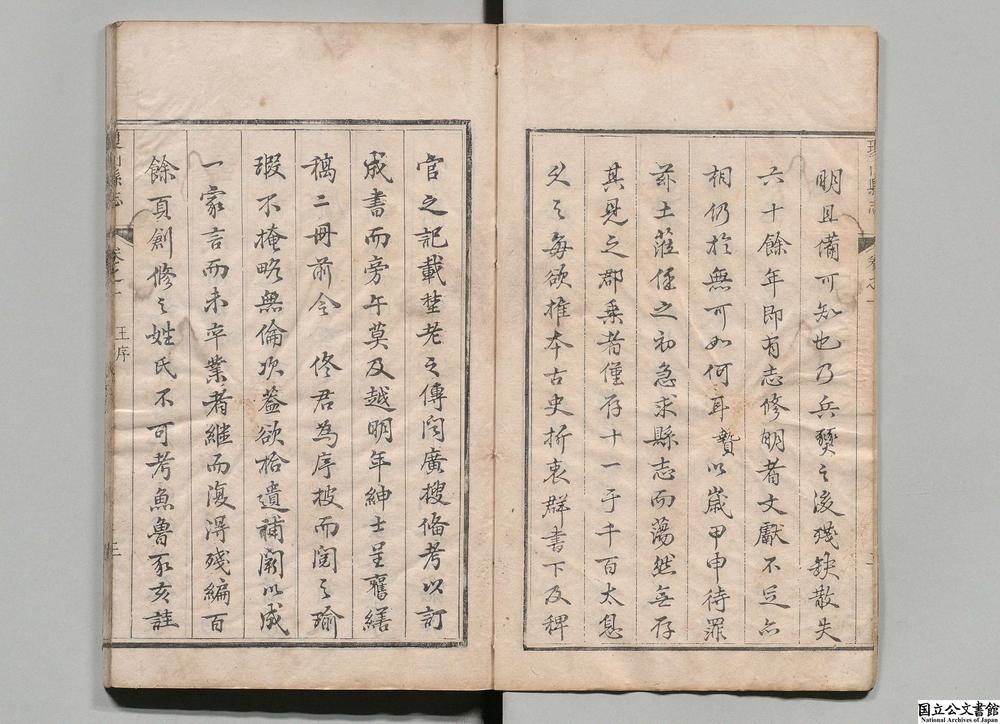 明且備可知也乃兵燹之後殘缺散失
六十餘年即有志修明者文獻不足亦
相仍於無可如何耳贄以歲甲申待罪
茲土蒞任之初急求縣志而蕩然無存
其見之郡乗者僅存十一于千百太息
久之每欲推本古史折衷群書下及稗
官之記載埜老之傳聞廣搜备考以訂
成書而旁午莫及越明年紳士呈舊繕
稿二冊前令 佟君為序披而閱之瑜
瑕不掩略無倫次葢欲拾遺補闕以成
一家言而未卒業者継而復淂殘編百
餘頁創修之姓氏不可考魚魯豕亥註
縣志 卷之一 王序
國立公文書館
National Archives of Japan